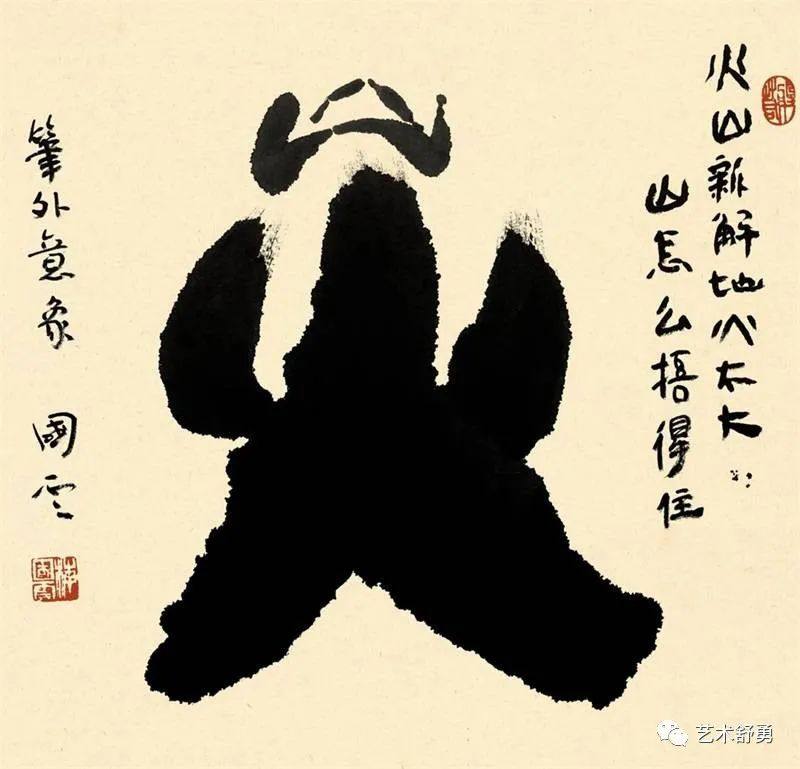 火山新解地火太大
山怎么捂得住
山
火
筆外意象 國雲
艺术舒勇